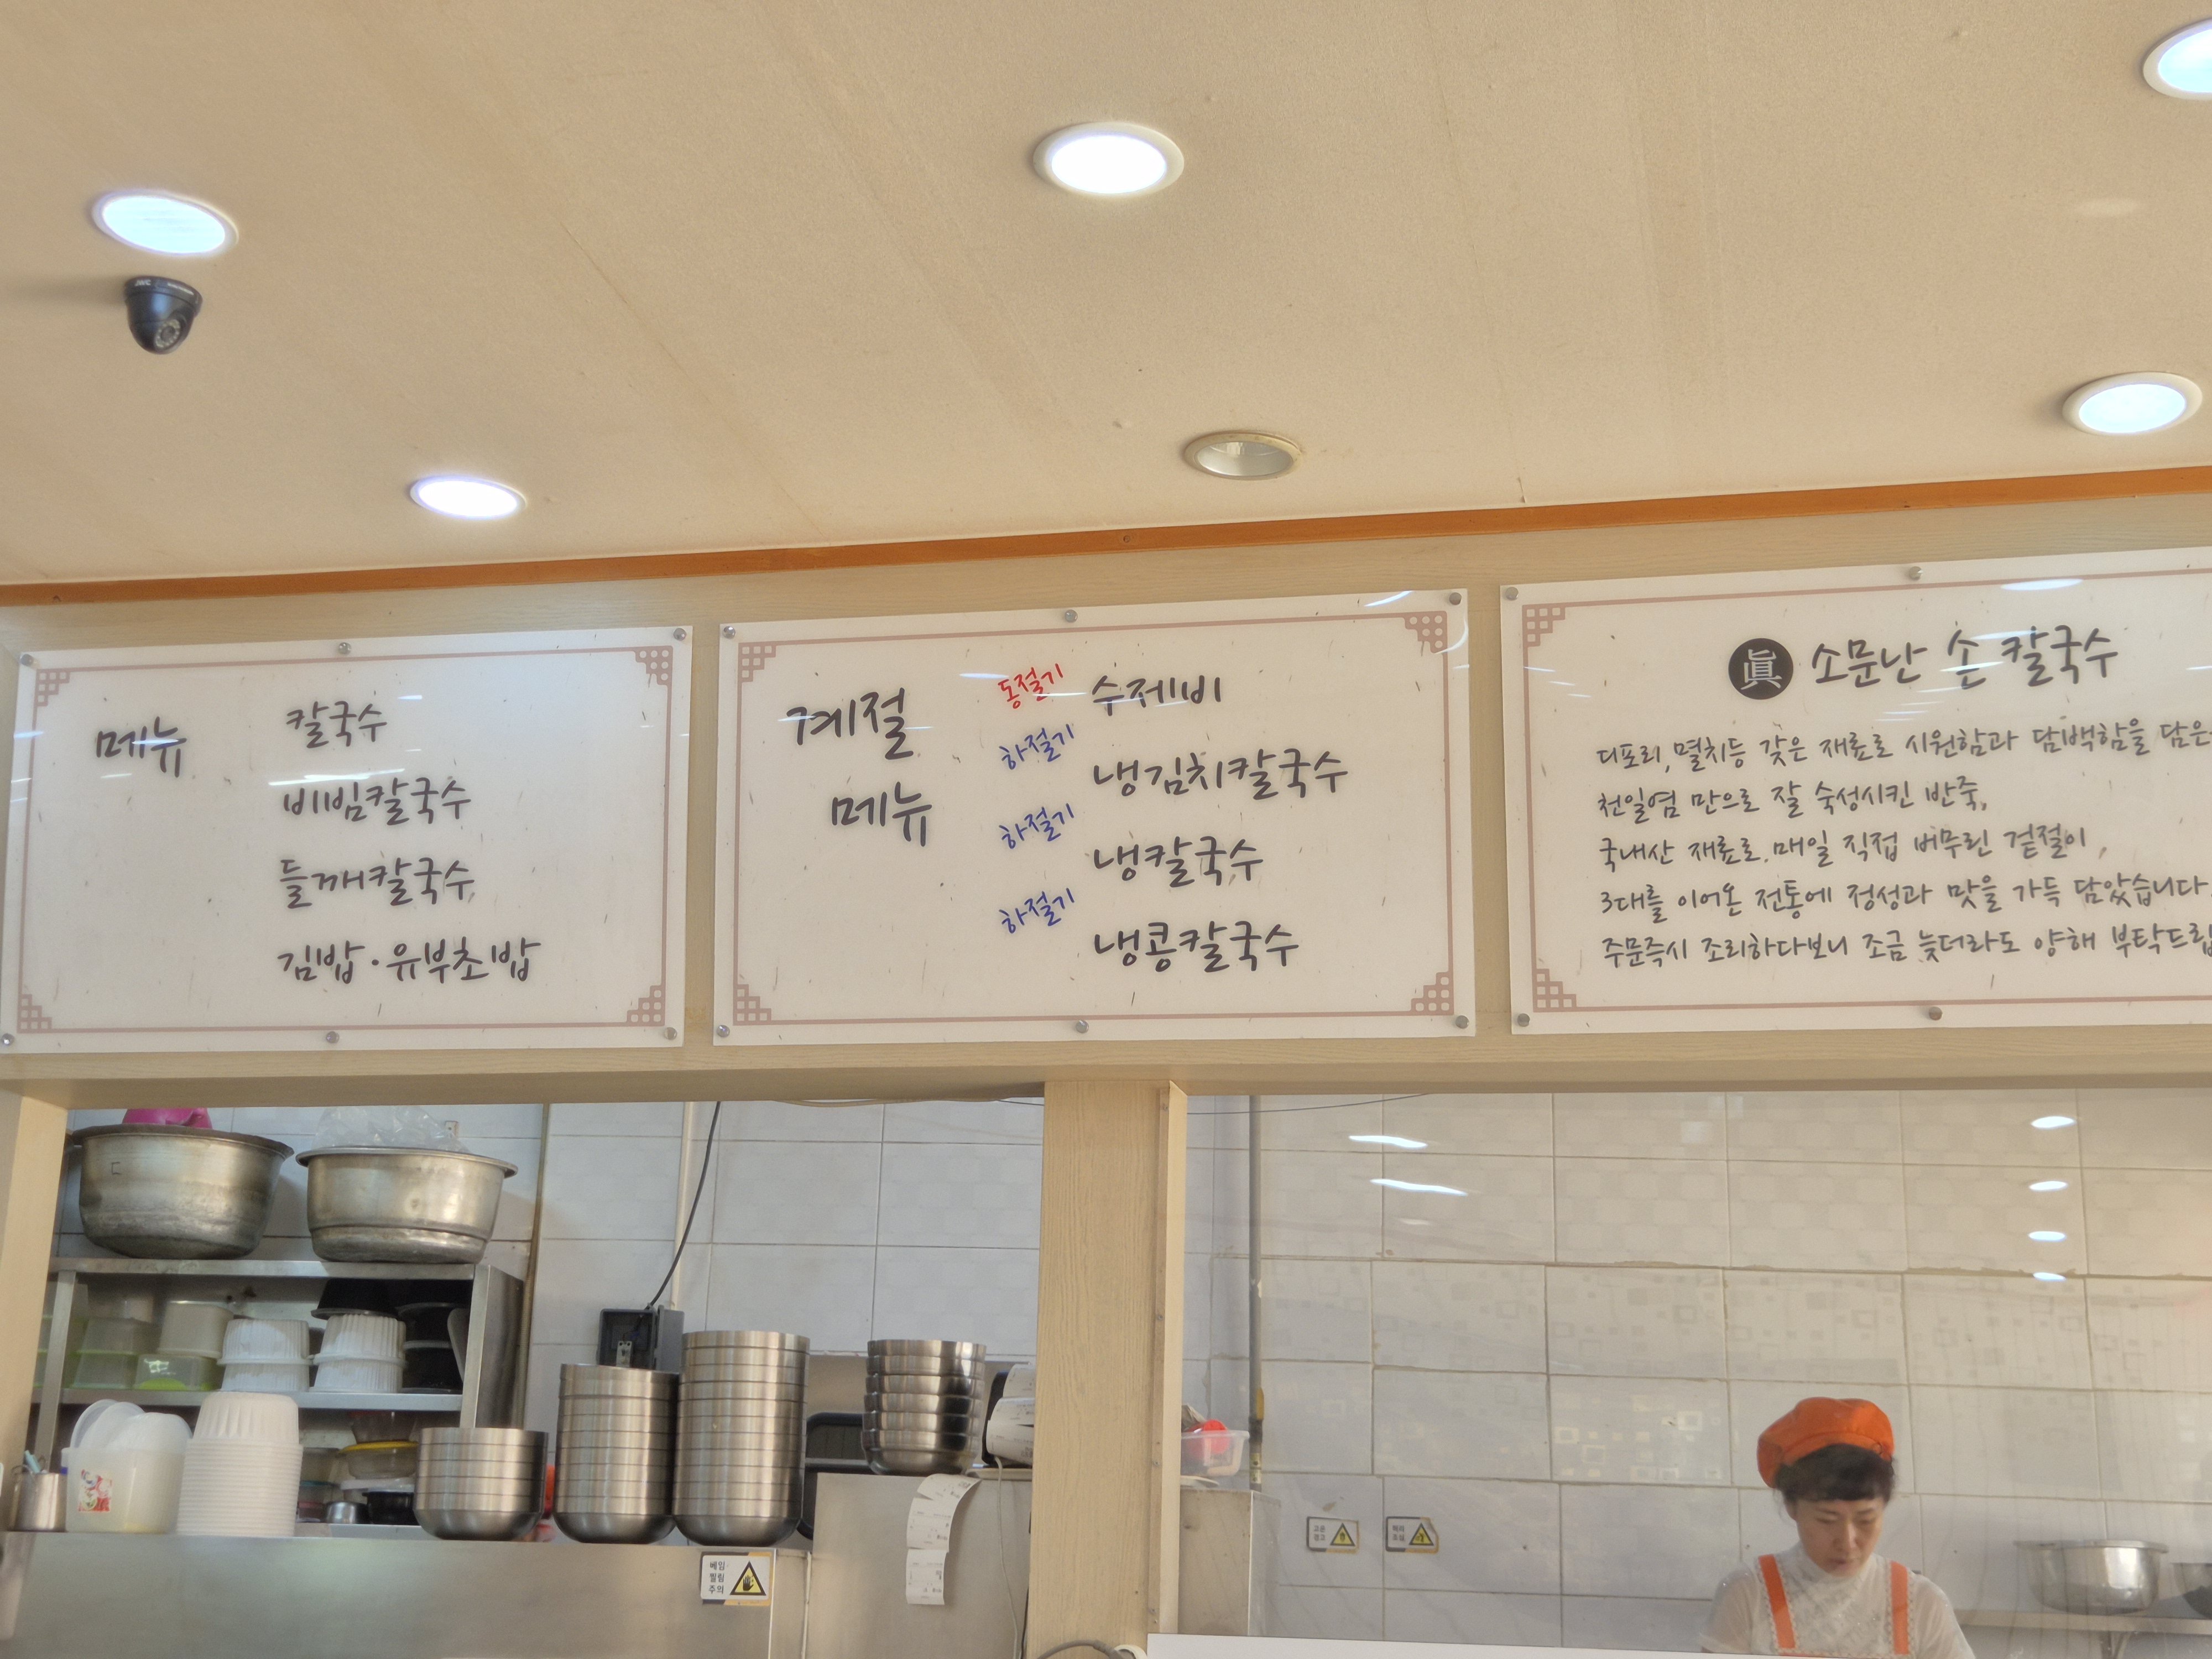 메뉴
칼국수
비빔칼국수
들깨칼국수
김밥·유부초밥
계절
메뉴
동절기 수제비
하절기 냉김치칼국수
하절기 냉칼국수
하절기 냉콩칼국수
眞 소문난 손 칼국수
디포리, 멸치등 갖은 재료로 시원함과 담백함을 담은
천일염 만으로 잘 숙성시킨 반죽,
국내산 재료로 매일 직접 버무린 겉절이,
3대를 이어온 전통에 정성과 맛을 가득 담았습니다.
주문즉시 조리하다보니 조금 늦더라도 양해 부탁드립
베임
찔림
주의
고온
경고